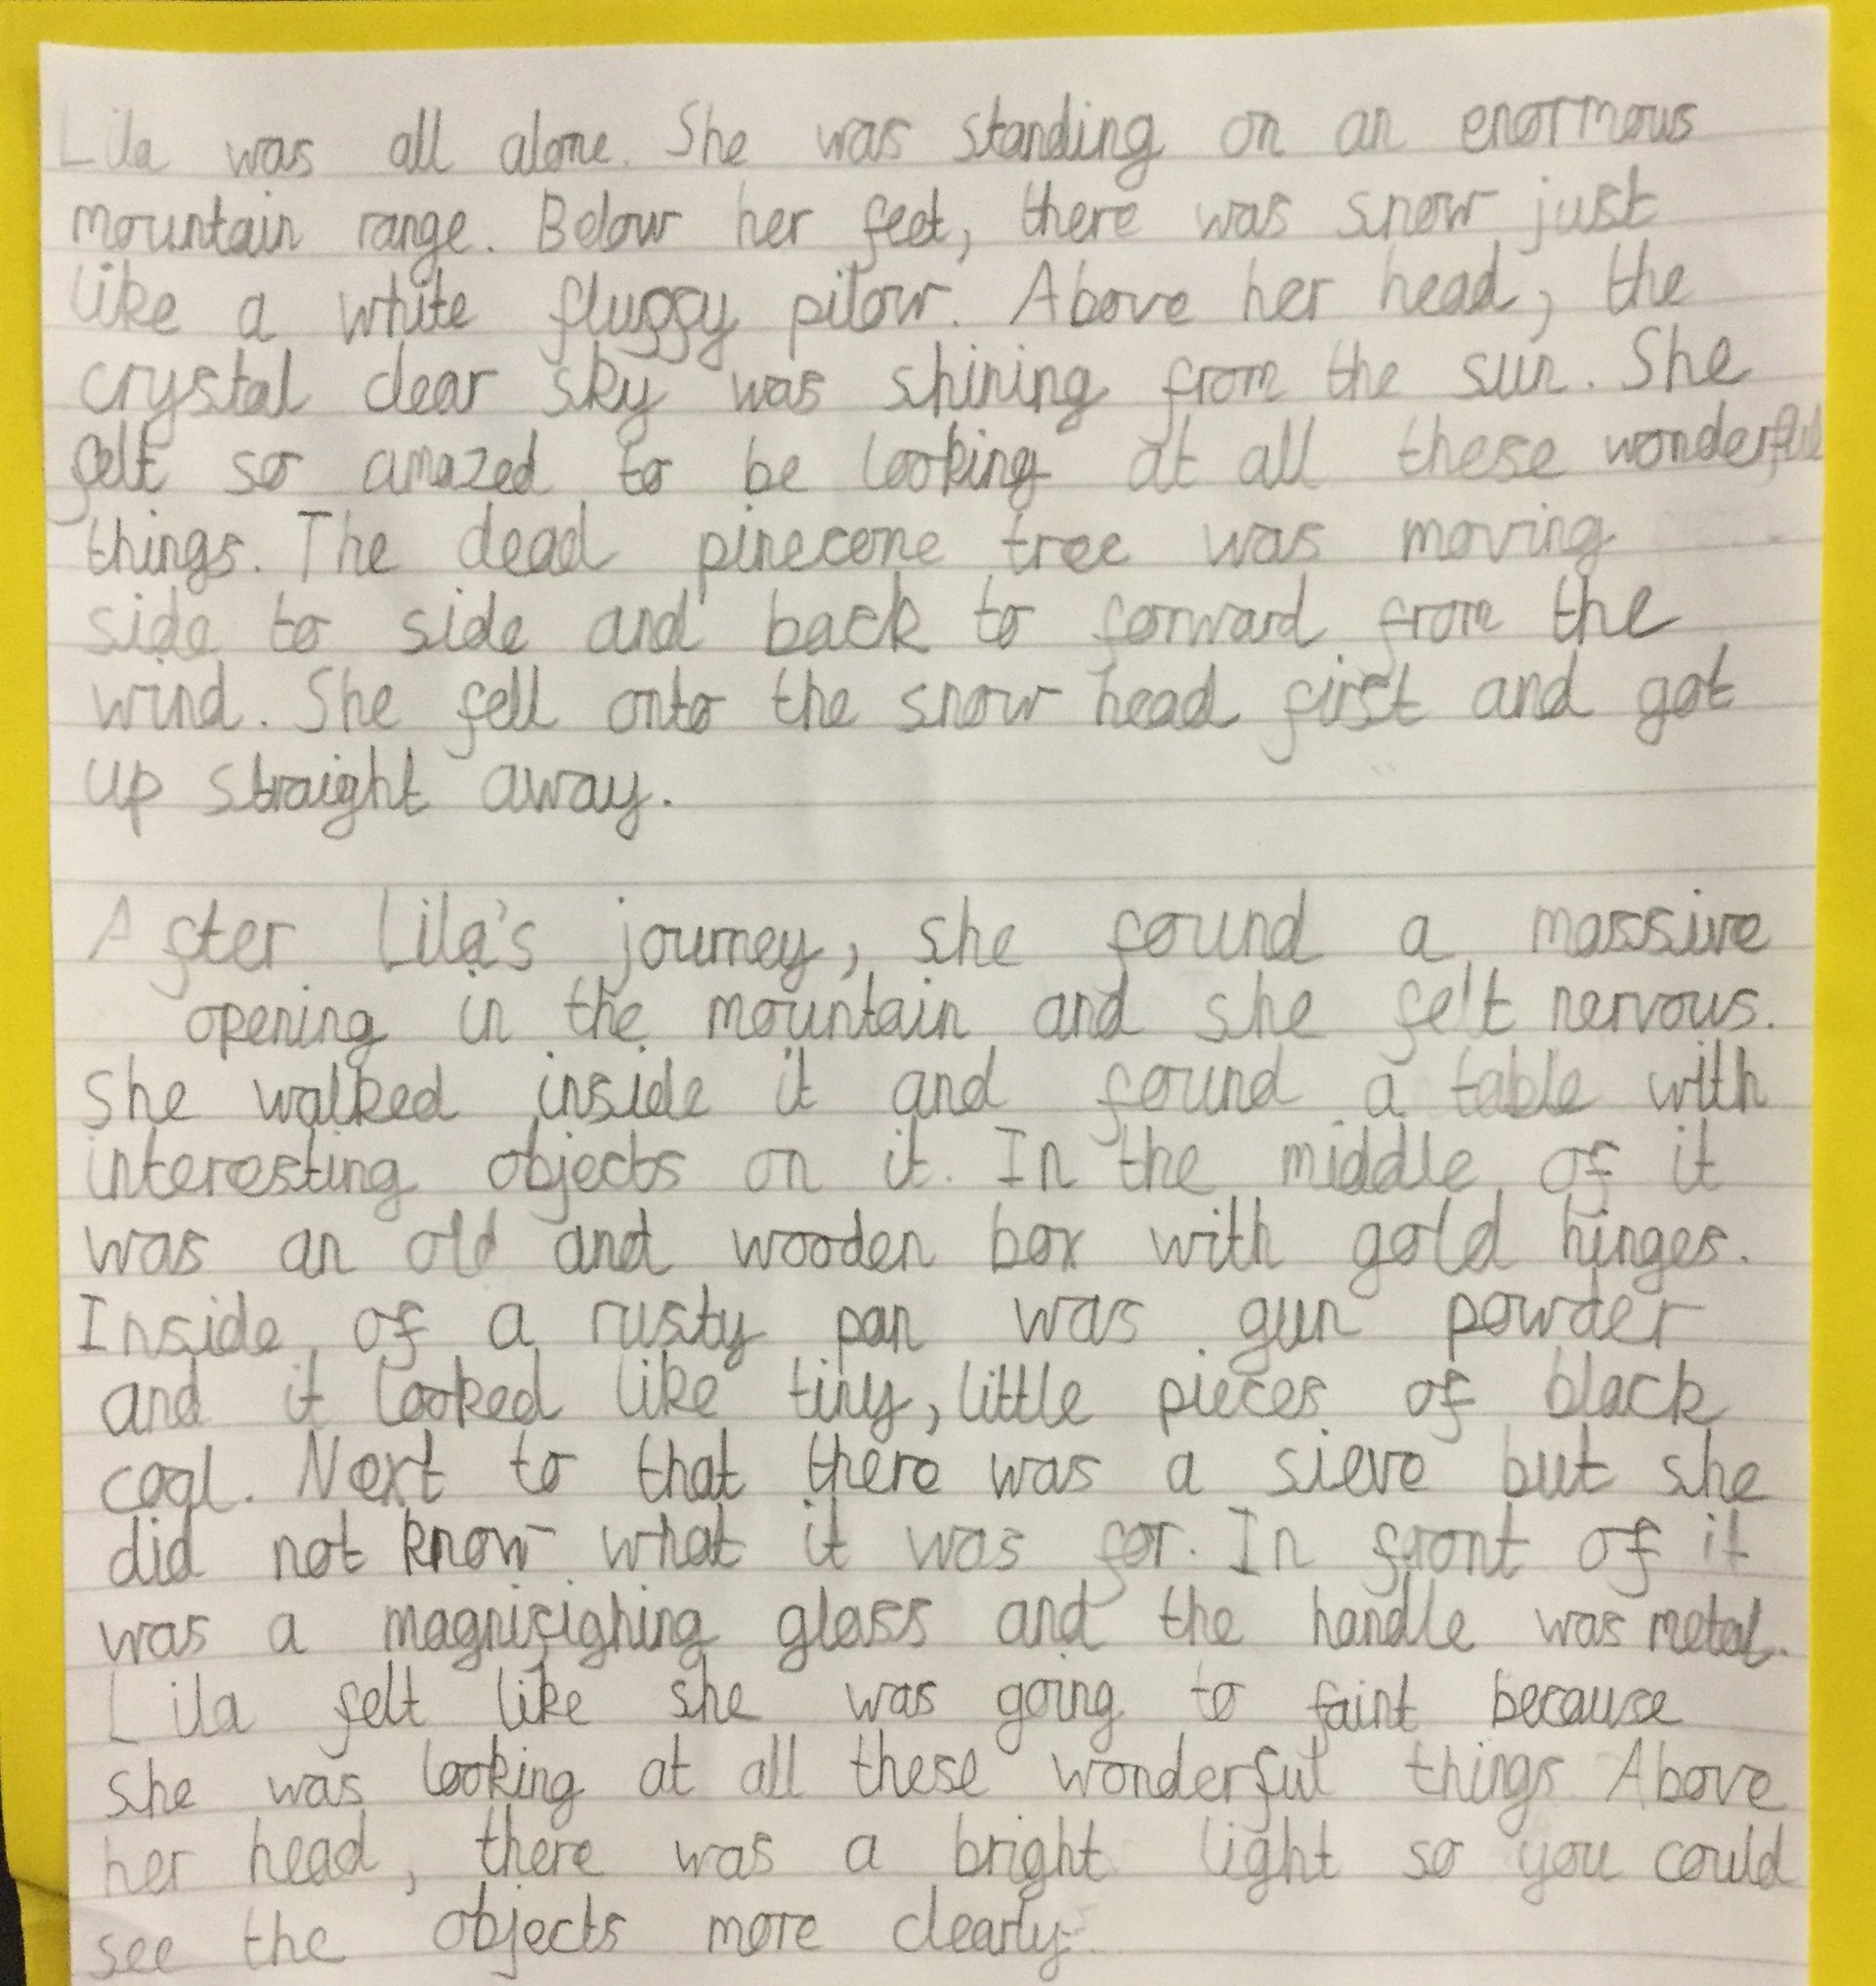 Lila was all alone. She was standing on an enormous
mountain range. Below her feet, there was snow just
like a white fluffy pilow. Above her head, the
crystal clear sky was shining from the sun. She
felt so amazed to be looking at all these wonderful
things. The dead pinecone tree was moving
side to side and back to forward from the
wind. She fell onto the snow head first and got
up straight away.
After Lila's journey, she found a massive
opening in the mountain and she felt nervous.
She walked inside it and found a table with
interesting objects on it. In the middle of it
was an old and wooden box with gold hinges.
Inside of a rusty pan was gun powder
and it looked like tiny, little pieces of black
coal. Next to that there was a sieve but she
did not know what it was for. In front of it
was a magnifighing glass and the handle was metal.
Lila felt like she was going to faint because
she was looking at all these wonderful things. Above
her head, there was a bright light so you could
see the objects more clearly.